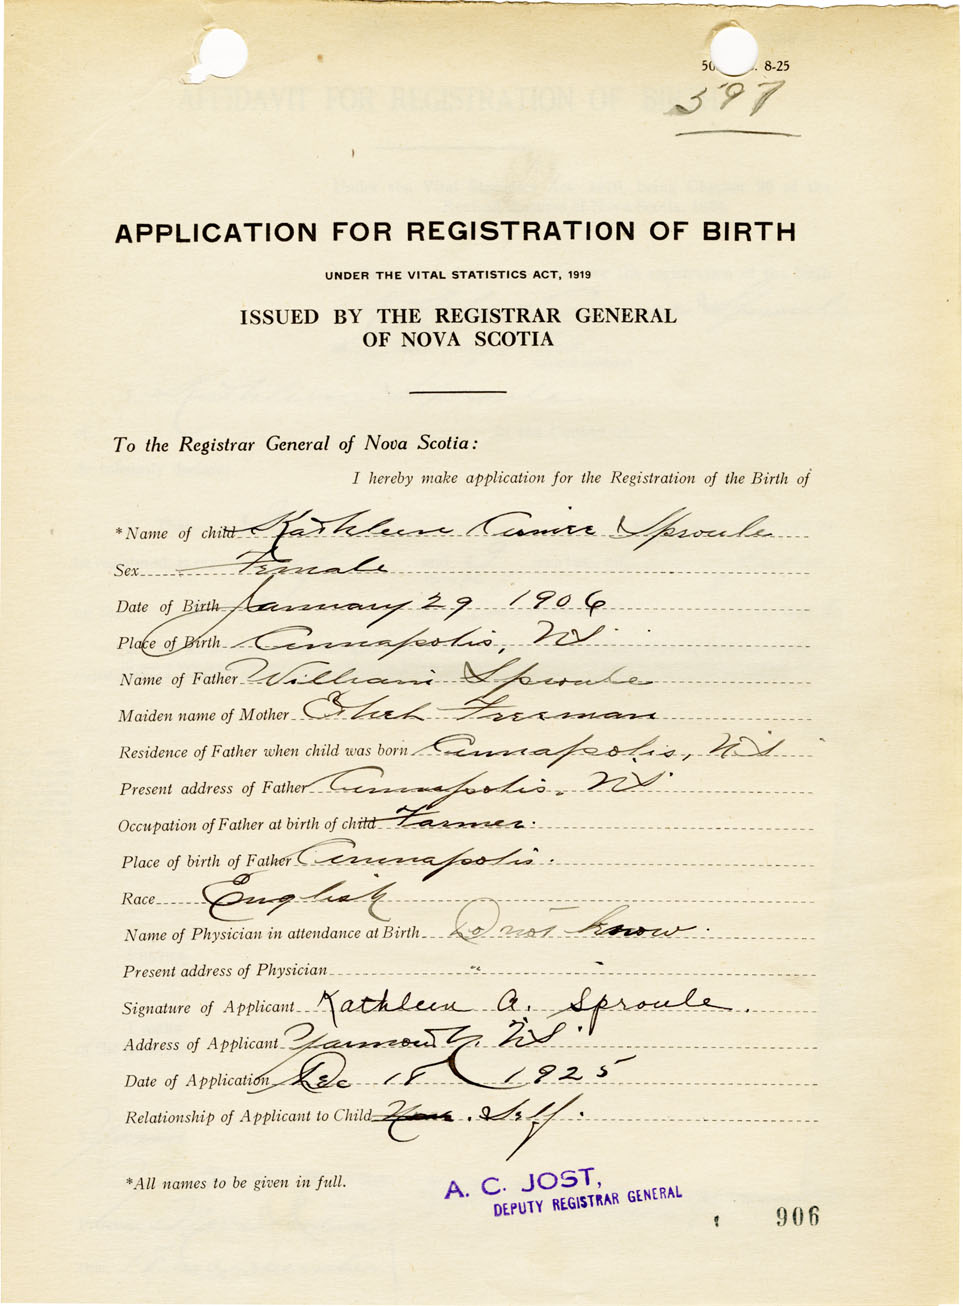 8-25
597
APPLICATION FOR REGISTRATION OF BIRTH
UNDER THE VITAL STATISTICS ACT, 1919
ISSUED BY THE REGISTRAR GENERAL
OF NOVA SCOTIA
To the Registrar General of Nova Scotia:
I hereby make application for the Registration of the Birth of
*Name of child Kathleen Sproule
Sex Female
Date of Birth January 29 1906
Place of Birth Annapolis, NS
Name of Father William Sproule
Maiden name of Mother Ethel Freeman
Residence of Father when child was born Annapolis, NS
Present address of Father Annapolis, NS
Occupation of Father at birth of child Farmer
Place of birth of Father Annapolis.
Race English
Name of Physician in attendance at Birth Do not know.
Present address of Physician " "
Signature of Applicant Kathleen A. Sproule.
Address of Applicant Yarmouth, NS
Date of Application Dec 18 1925
Relationship of Applicant to Child Self.
*All names to be given in full.
A. C. JOST,
DEPUTY REGISTRAR GENERAL
906